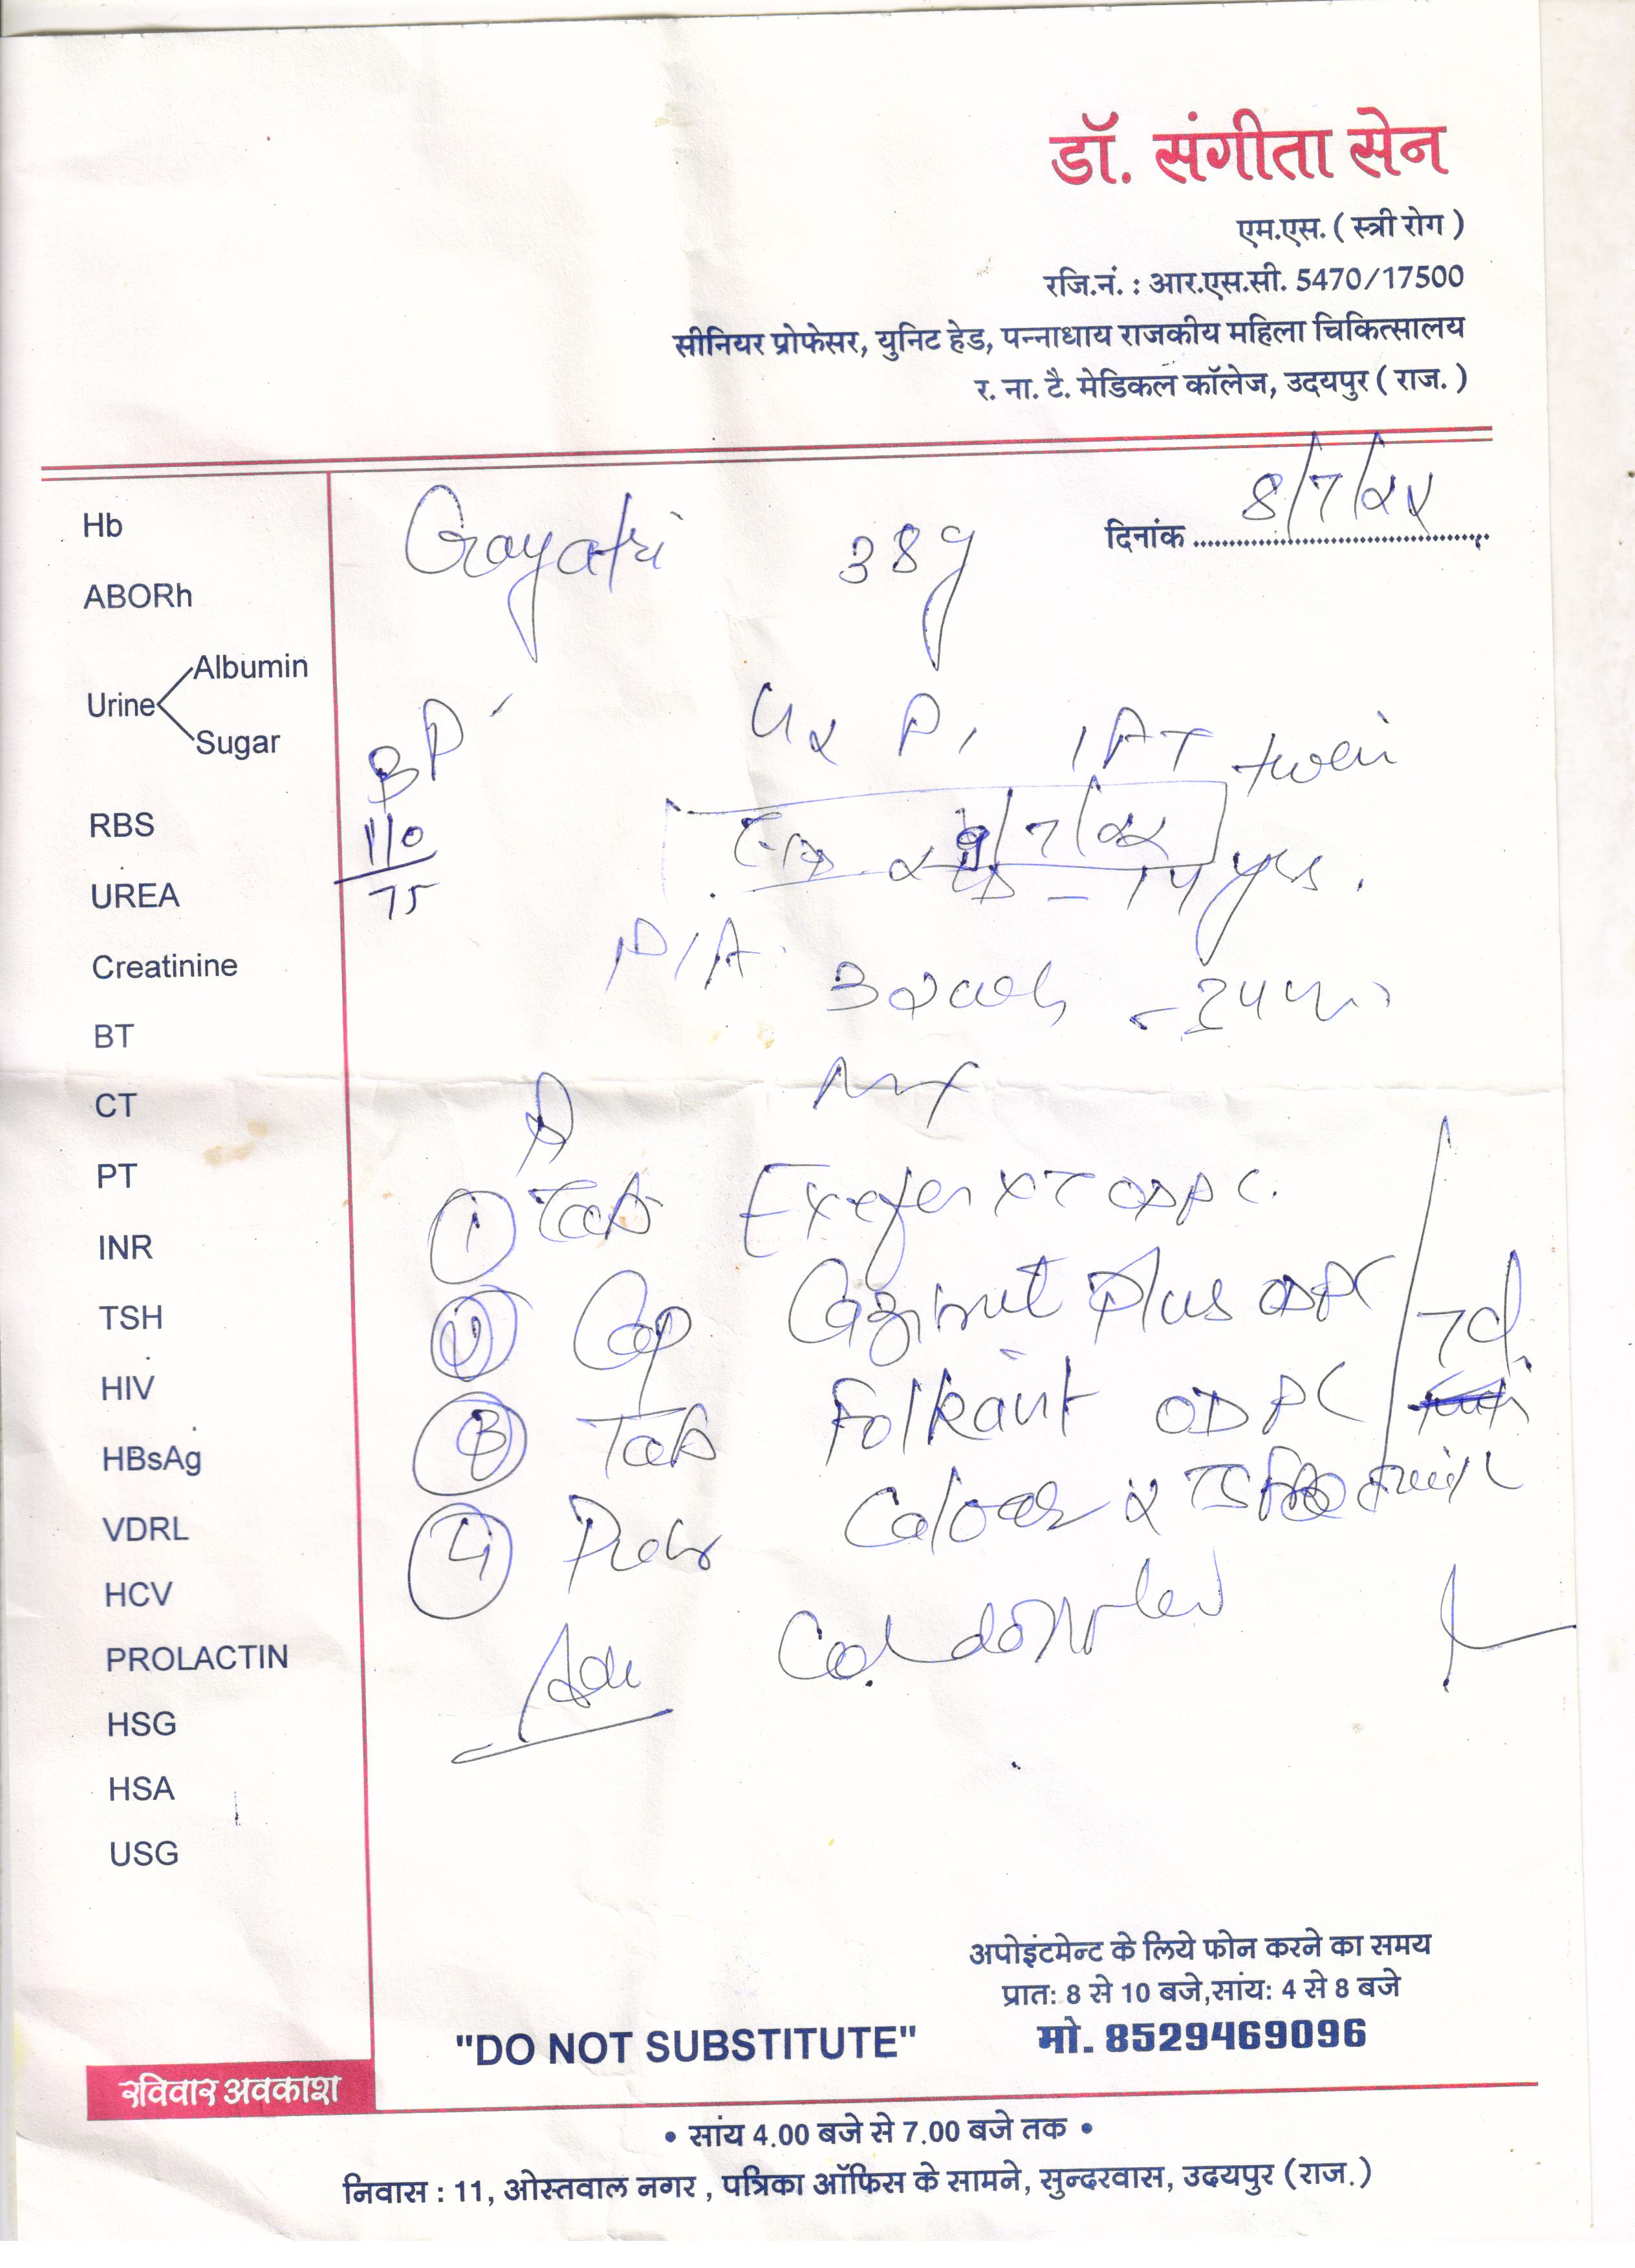 डॉ. संगीता सेन
एम.एस. ( स्त्री रोग )
रजि.नं. : आर.एस.सी. 5470/17500
सीनियर प्रोफेसर, युनिट हेड, पन्नाधाय राजकीय महिला चिकित्सालय
र. ना. टै. मेडिकल कॉलेज, उदयपुर ( राज. )
दिनांक 8/7/22
Gayatri 38y
Hb
ABORh
Urine
Albumin
Sugar
RBS
UREA
Creatinine
BT
CT
PT
INR
TSH
HIV
HBsAg
VDRL
HCV
PROLACTIN
HSG
HSA
USG
BP
110
75
G2 P1
twin
/7/22
14 yrs.
P/A
① Tab XT OD PC.
② Cap Plus OD PC
7d
③ Tab OD PC
④
Adv
"DO NOT SUBSTITUTE"
अपोइंटमेन्ट के लिये फोन करने का समय
प्रात: 8 से 10 बजे,सांय: 4 से 8 बजे
मो. 8529469096
रविवार अवकाश
• सांय 4.00 बजे से 7.00 बजे तक •
निवास : 11, ओस्तवाल नगर , पत्रिका ऑफिस के सामने, सुन्दरवास, उदयपुर (राज.)